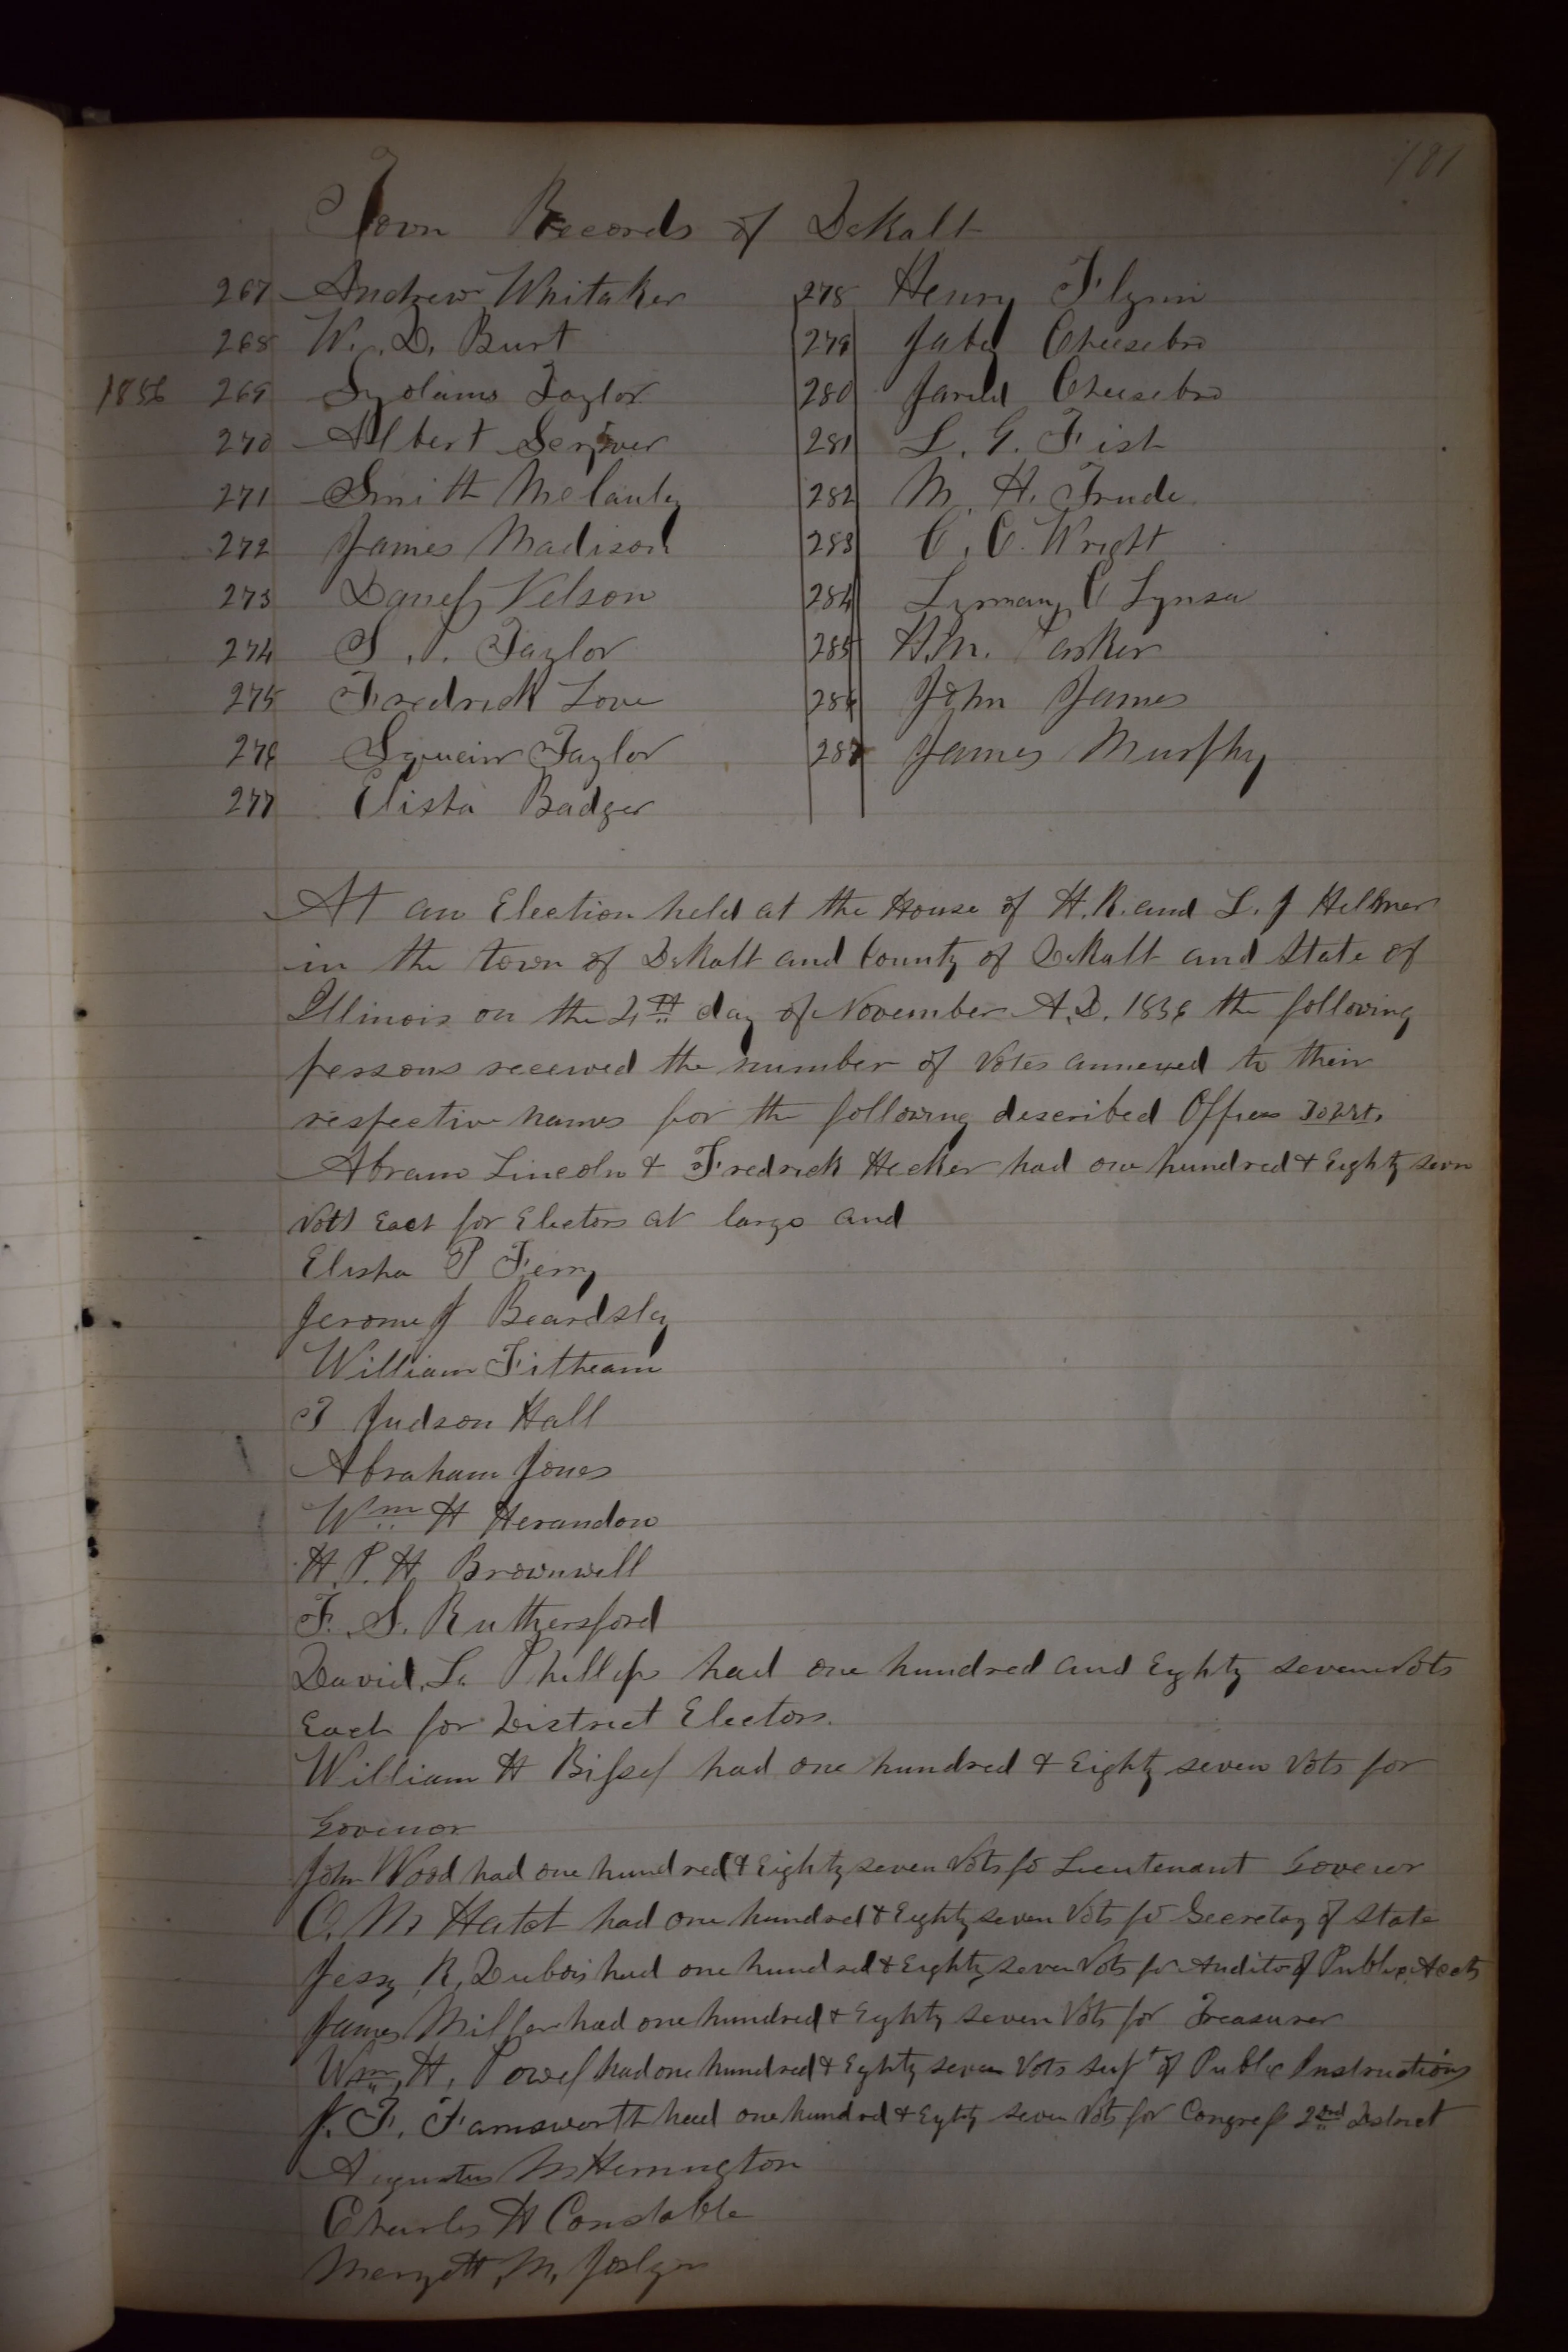 181
Town Records of DeKalb
267 Andrew Whitaker
268 W. D. Burt
1856 269 Taylor
270 Albert Scriver
271 Smith
272 James Madison
273 Nelson
274 Taylor
275 Fredrick Love
276 Taylor
277 Elisha Badger
278 Henry Flynn
279 Cheesebro
280 Jarud Cheesebro
281 L. G. Fisk
282 M. H. Trude
283 C. C. Wright
284 Lyman C
285 H. M. Parker
286 John James
287 James Murphy
At an Election held at the House of H. R. and L. J
in the town of DeKalb and County of DeKalb and State of
Illinois on the 4th day of November A.D. 1856 the following
persons received the number of Votes annexed to their
respective names for the following described Offices Towit.
Abram Lincoln & Fredrick Hecker had one hundred & Eighty seven
Vots Each for Electors at large and
Elisha P Ferry
Jerome J Beardsley
William Fitheam
T Judson Hall
Abraham Jones
Wm H Herandon
H. P. H. Brownwell
F. S. Ruthersford
David L. Phillips had one hundred and Eighty seven Vots
Each for District Electors.
William H Bissel had one hundred & Eighty seven Vots for
Govenor
John Wood had one hundred & Eighty seven Vots fo Lieutenant Govenor
O. M Hatch had one hundred & Eighty seven Vots fo Secretay of State
Jessy K. Dubois had one hundred & Eighty seven Vots for Auditor of Public Accts
James Miller had one hundred & Eighty seven Vots for Treasurer
Wm H. Powel had one hundred & Eighty seven Vots supt of Public Instructions
J. F. Farnsworth had one hundred & Eighty seven Vots for Congress 2nd District
Augustus M Herrington
Charles H Constable